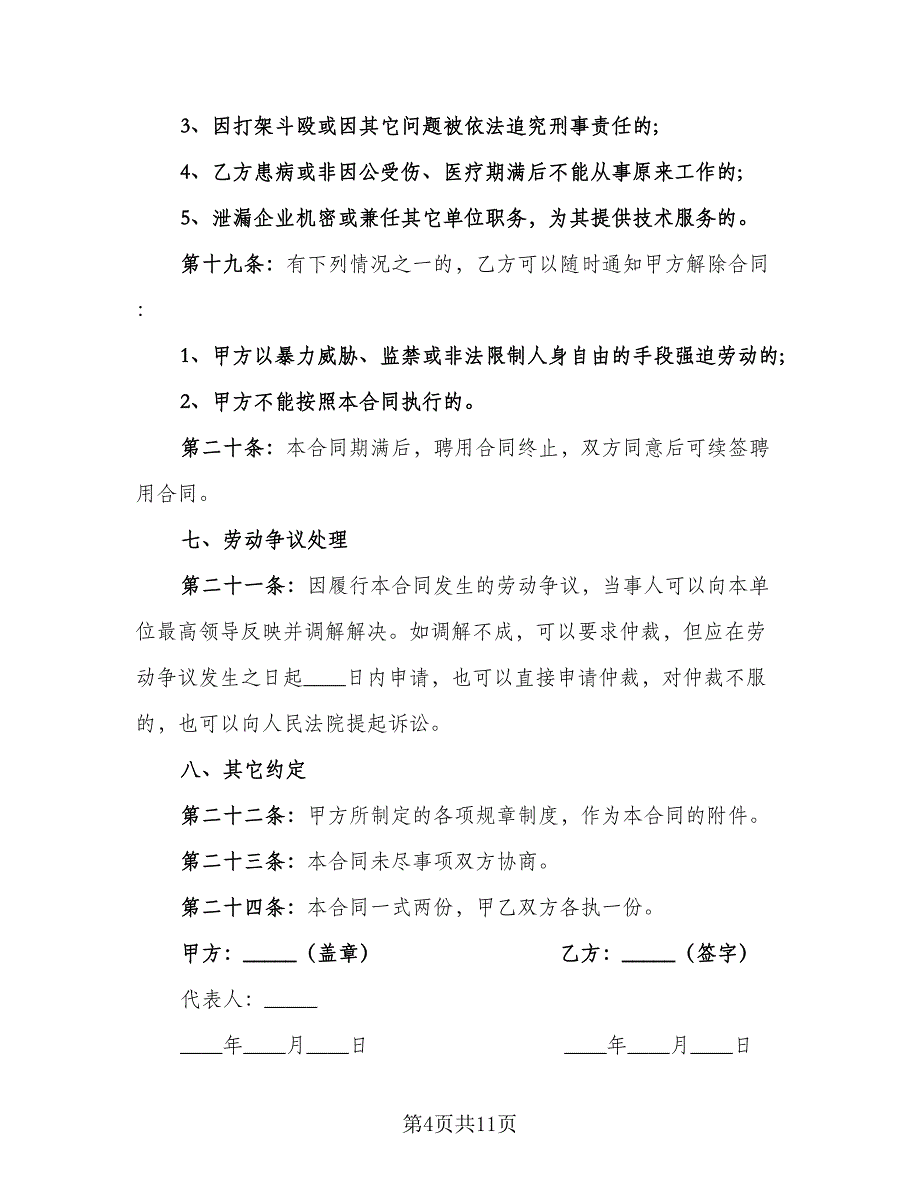 3、因打架斗殴或因其它问题被依法追究刑事责任的;
4、乙方患病或非因公受伤、医疗期满后不能从事原来工作的;
5、泄漏企业机密或兼任其它单位职务，为其提供技术服务的。
第十九条：有下列情况之一的，乙方可以随时通知甲方解除合同
：
1、甲方以暴力威胁、监禁或非法限制人身自由的手段强迫劳动的;
2、甲方不能按照本合同执行的。
第二十条：本合同期满后，聘用合同终止，双方同意后可续签聘
用合同。
七、劳动争议处理
第二十一条：因履行本合同发生的劳动争议，当事人可以向本单
位最高领导反映并调解解决。如调解不成，可以要求仲裁，但应在劳
动争议发生之日起____日内申请，也可以直接申请仲裁，对仲裁不服
的，也可以向人民法院提起诉讼。
八、其它约定
第二十二条：甲方所制定的各项规章制度，作为本合同的附件。
第二十三条：本合同未尽事项双方协商。
第二十四条：本合同一式两份，甲乙双方各执一份。
甲方：_____（盖章） 乙方：_____（签字）
代表人：_____
____年____月____日 ____年____月____日
第4页共11页